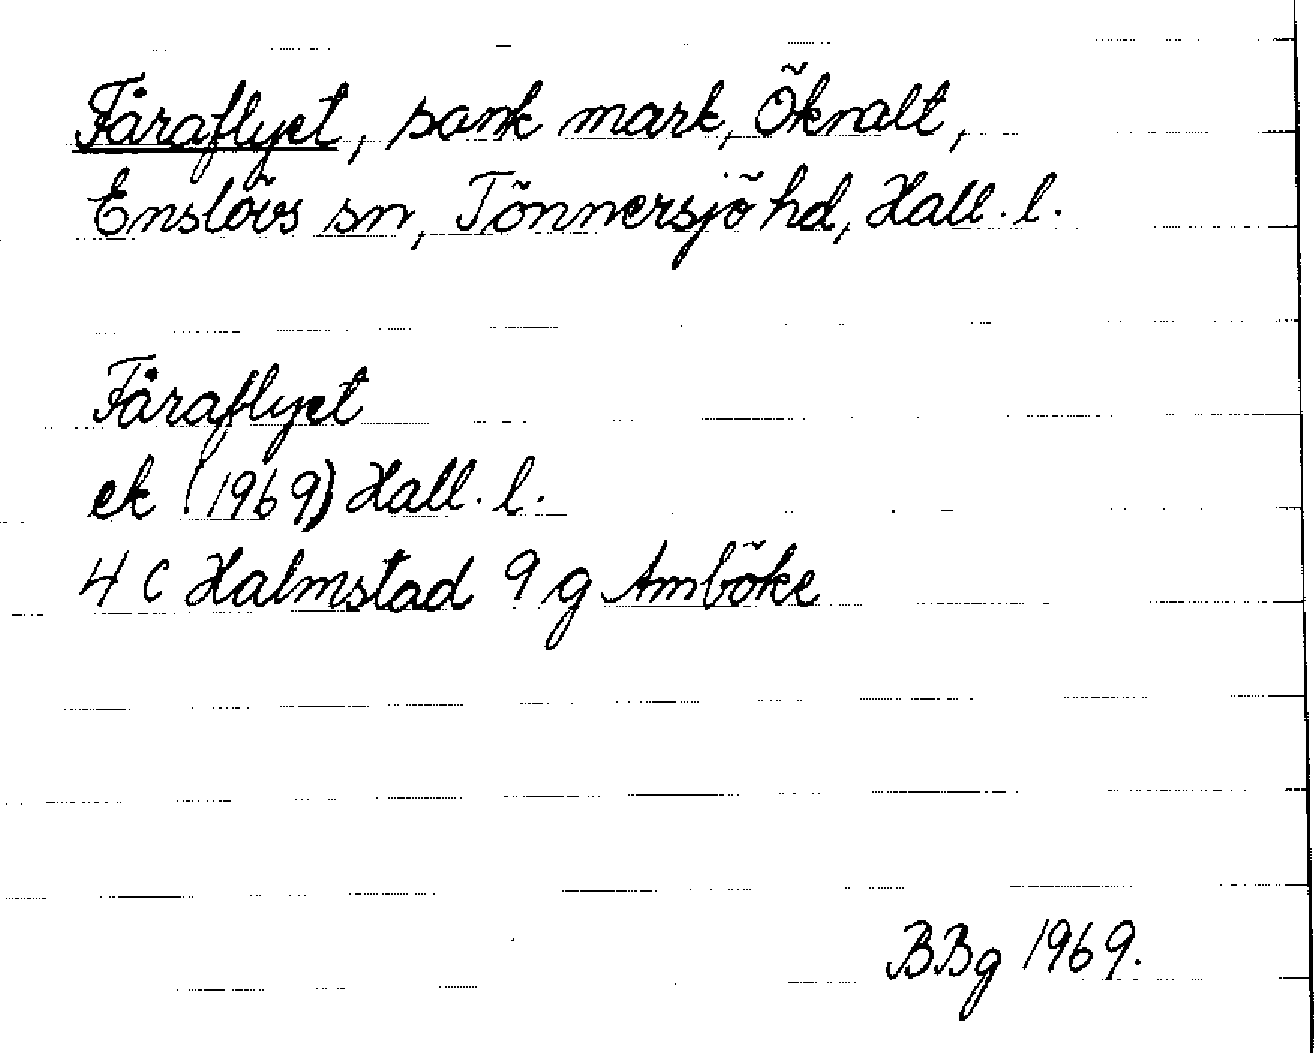 Fåraflyet, sank mark, Öknalt,
Enslövs sn, Tönnersjö hd, Hall. l.
Fåraflyet
ek (1969) Hall. l.
4 C Halmstad 9 g Amböke
BBg 1969.